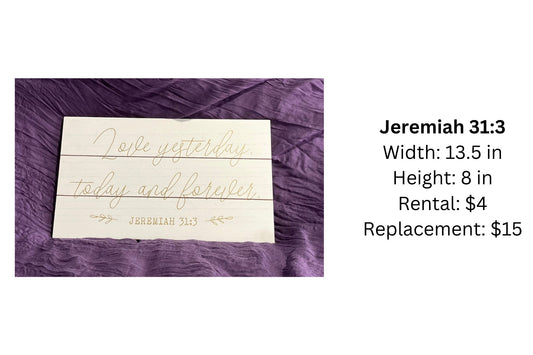 Love yesterday,
today and forever
JEREMIAH 31:3
Jeremiah 31:3
Width: 13.5 in
Height: 8 in
Rental: $4
Replacement: $15